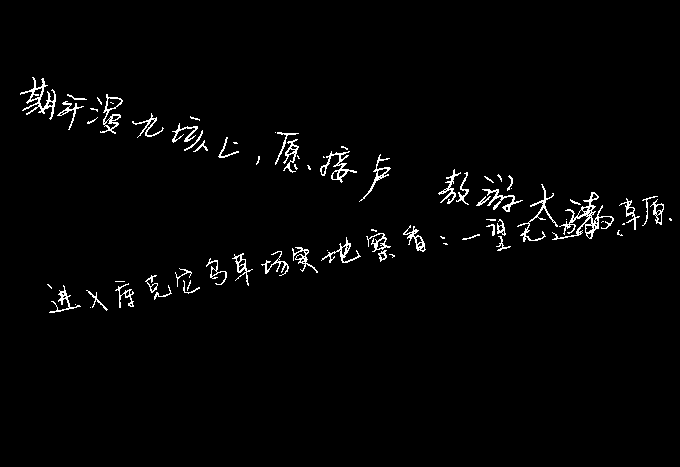 期汗漫九垓上，愿接卢 敖游太清
进入库克它乌草场实地察看：一望无边的草原